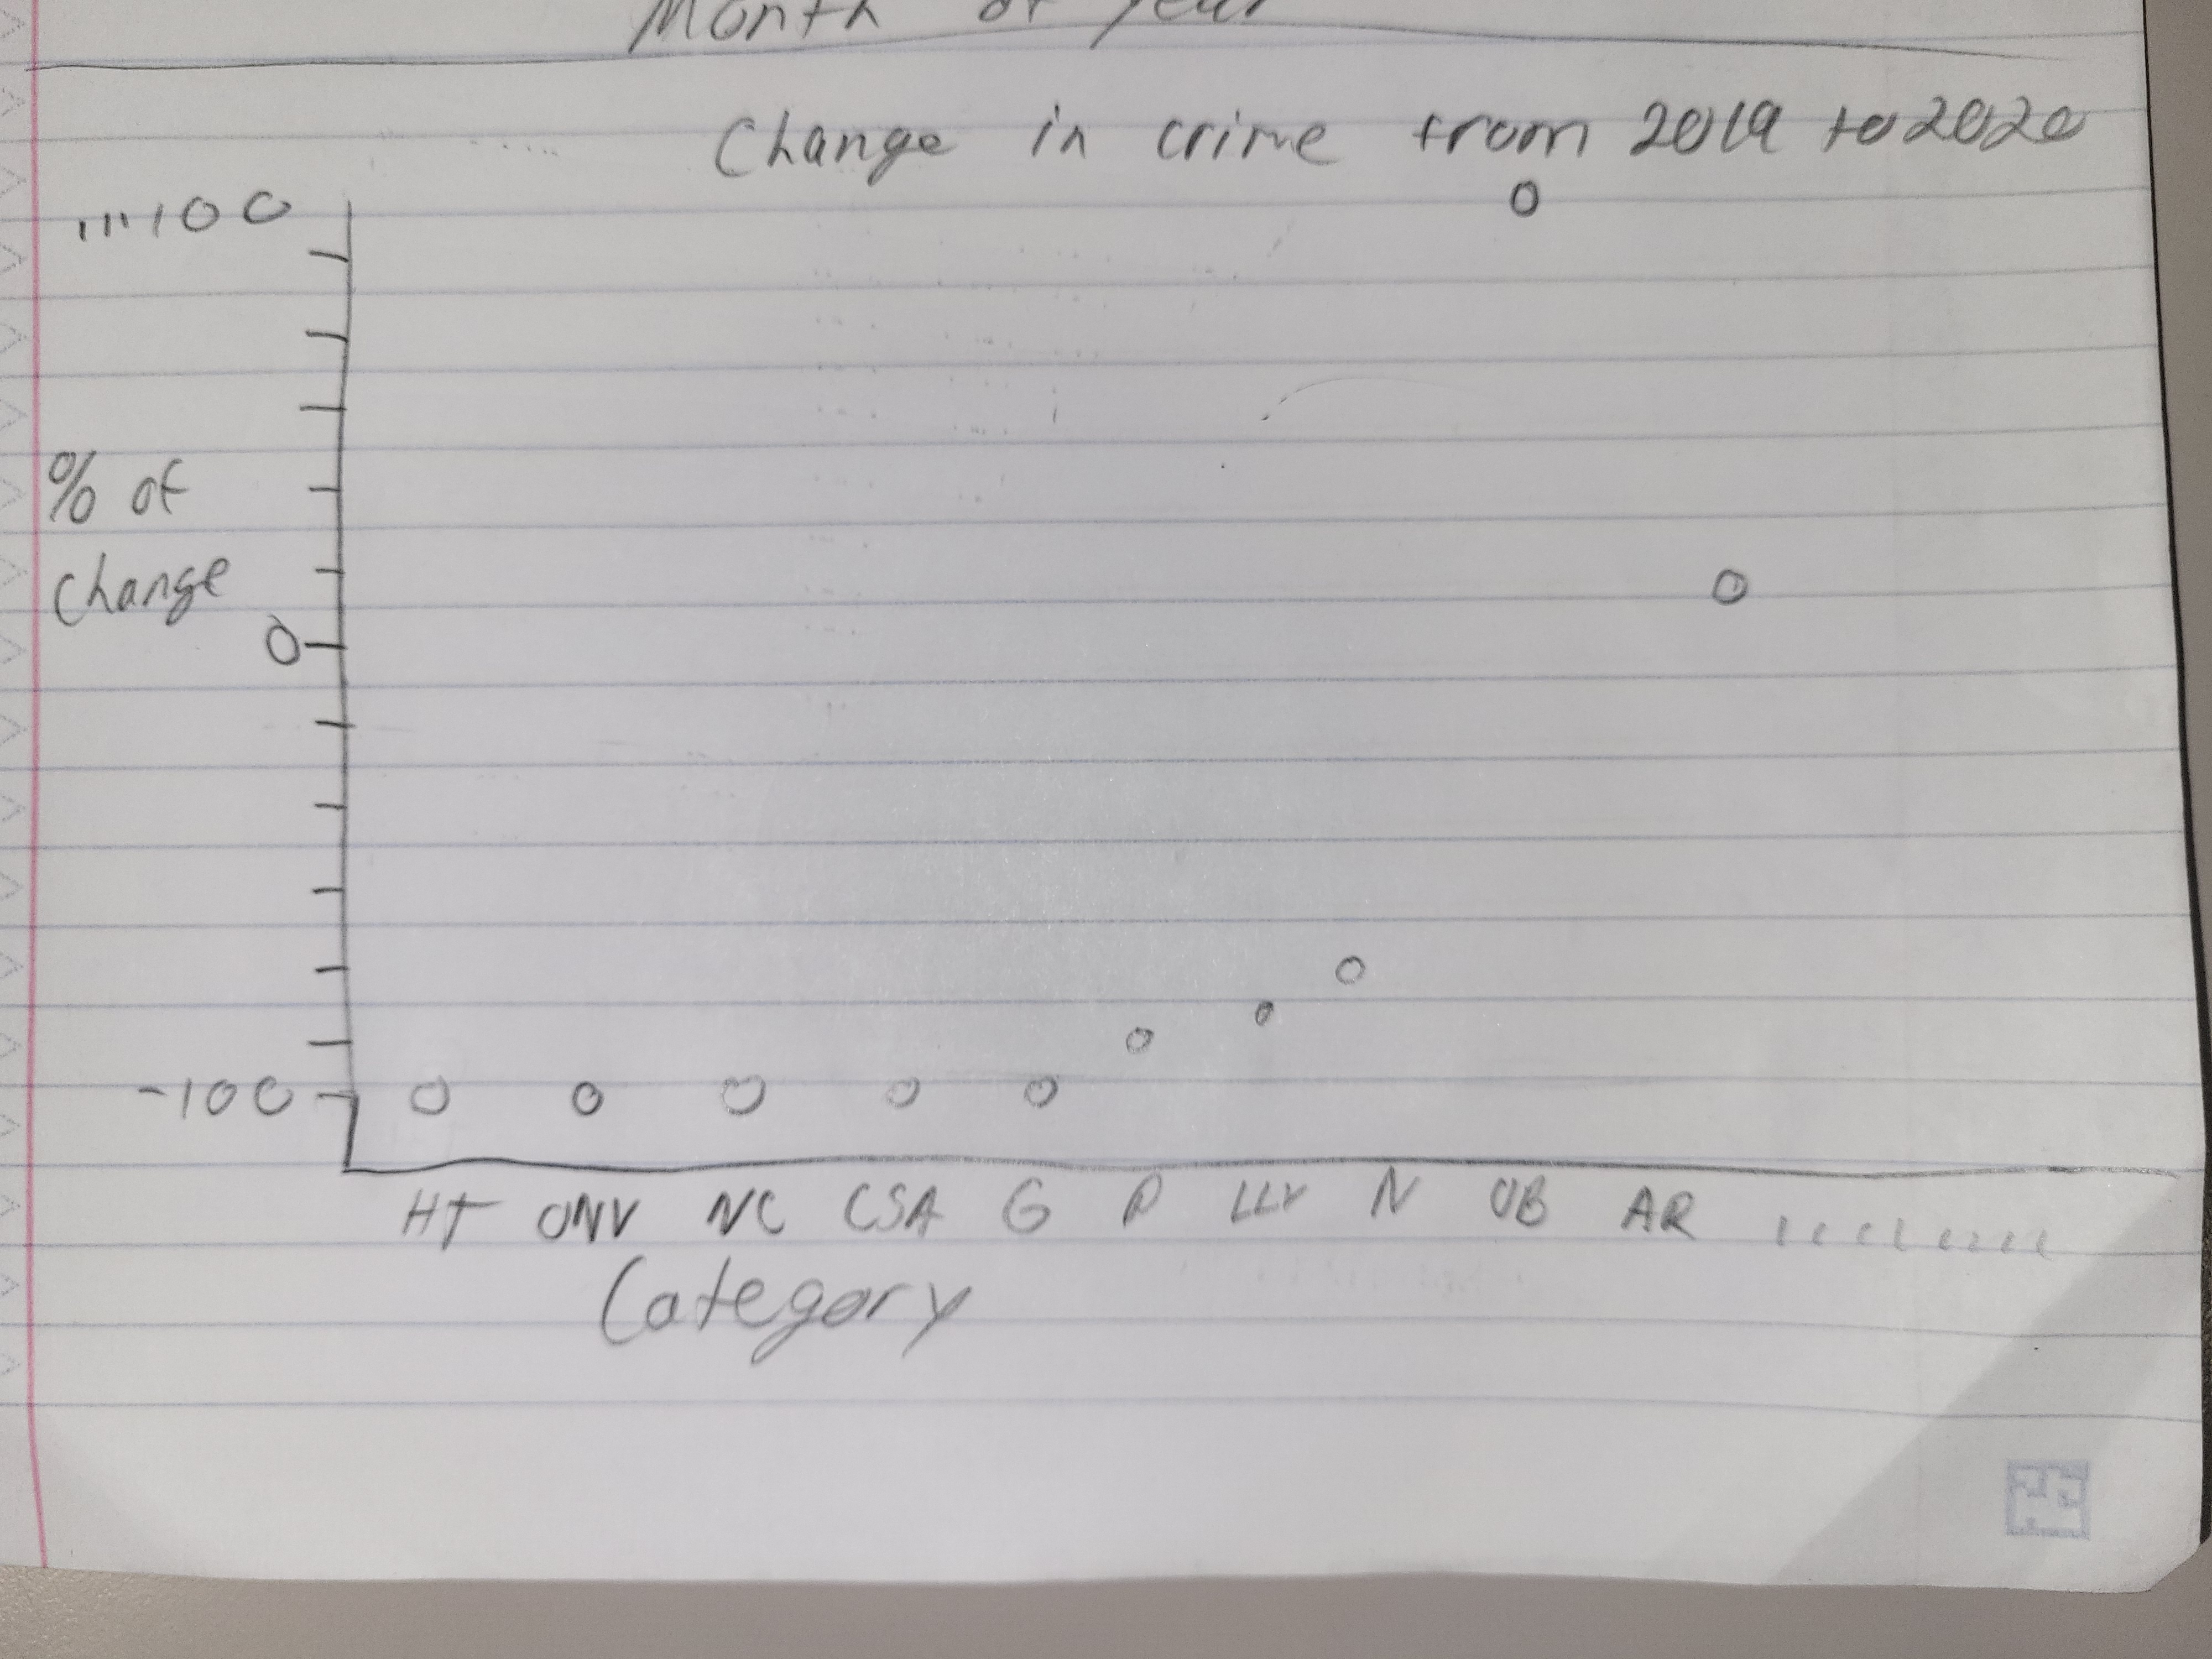 Month of year
Change in crime from 2019 to 2020
,,,,,100
% of
change
0
-100
HT ONV NC CSA G P LLV N OB AR ,,,,,,,,
Category